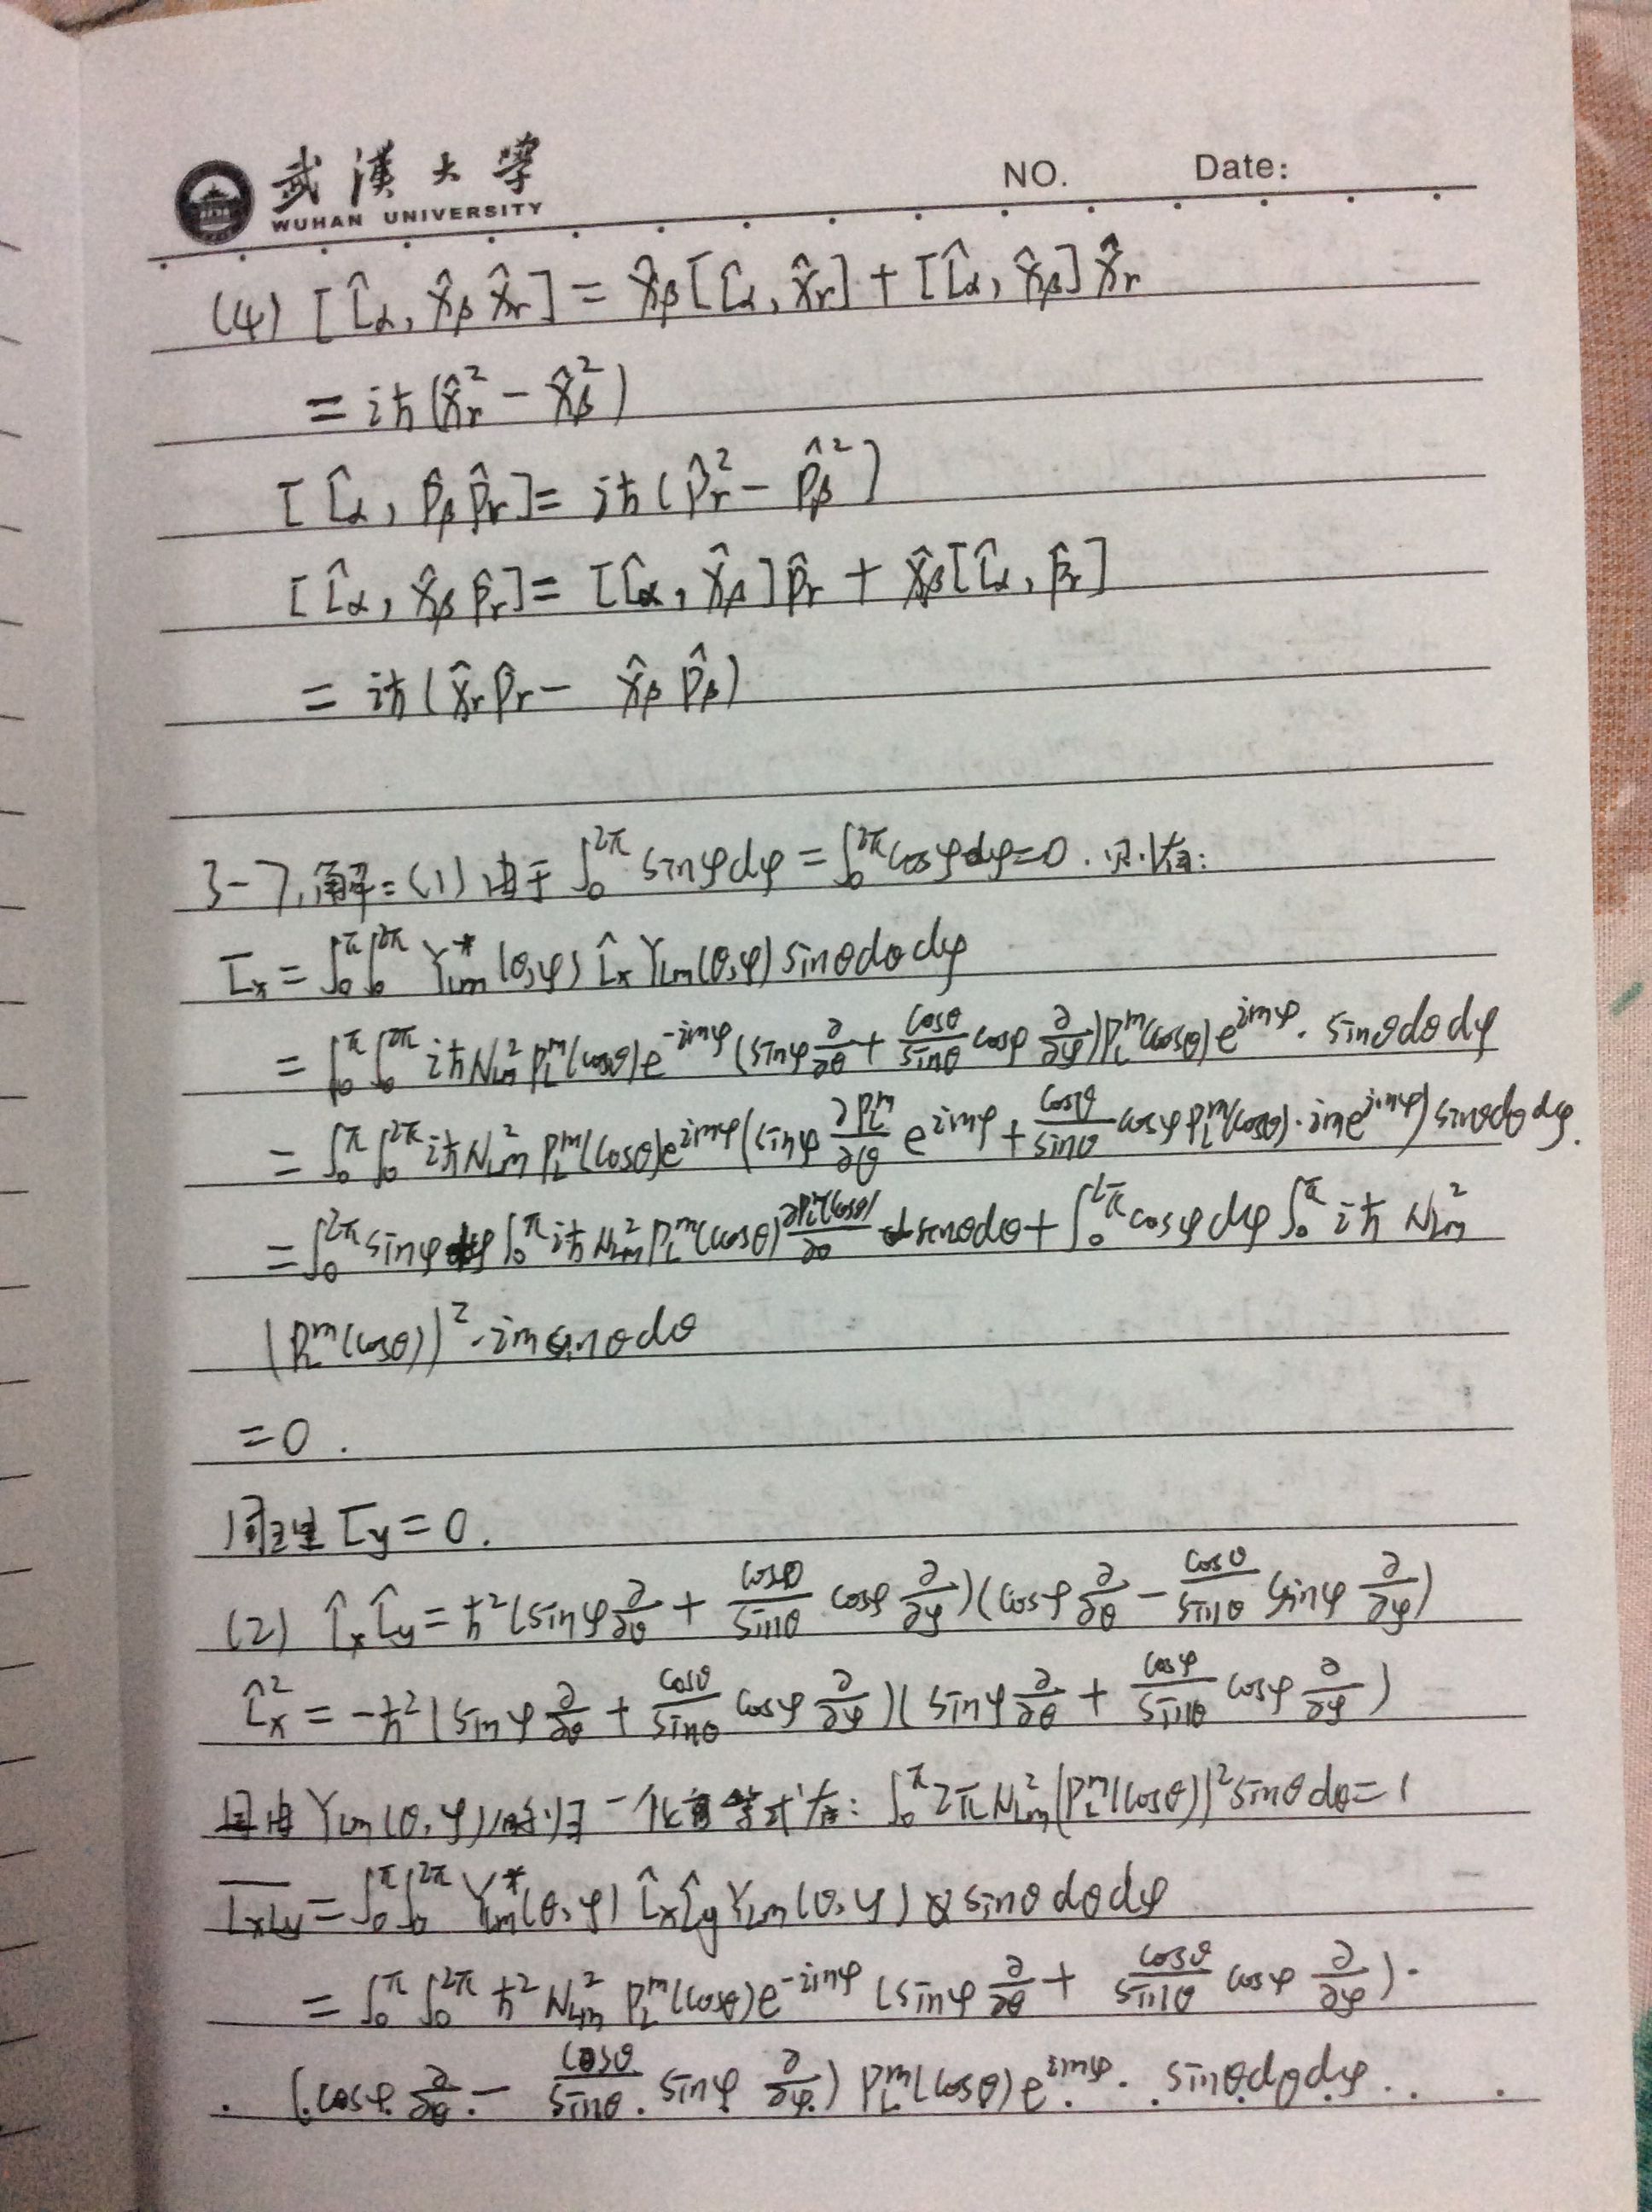 武漢大學
WUHAN UNIVERSITY
NO. Date:
(4) [L̂α, x̂β x̂r] = x̂β[L̂α, x̂r] + [L̂α, x̂β]x̂r
= iħ(x̂r² − x̂β²)
[L̂α, p̂β p̂r] = iħ(p̂r² − p̂β²)
[L̂α, x̂β p̂r] = [L̂α, x̂β]p̂r + x̂β[L̂α, p̂r]
= iħ(x̂r p̂r − x̂β p̂β)
3-7. 解: (1) 由于 ∫₀^{2π} sinφdφ = ∫₀^{2π} cosφdφ = 0. 则有:
L̄x = ∫₀^π∫₀^{2π} Y*Lm(θ,φ) L̂x YLm(θ,φ) sinθdθdφ
= ∫₀^π∫₀^{2π} iħ N²Lm PL^m(cosθ)e^{-imφ}(sinφ ∂/∂θ + cosθ/sinθ cosφ ∂/∂φ)PL^m(cosθ)e^{imφ}· sinθdθdφ
= ∫₀^π∫₀^{2π} iħ N²Lm PL^m(cosθ)e^{imφ}(sinφ ∂PL^m/∂θ e^{imφ} + cosθ/sinθ cosφ PL^m(cosθ)·im e^{imφ}) sinθdθdφ.
= ∫₀^{2π} sinφdφ ∫₀^π iħ N²Lm PL^m(cosθ) ∂PL^m(cosθ)/∂θ sinθdθ + ∫₀^{2π} cosφdφ ∫₀^π iħ N²Lm
(PL^m(cosθ))²·im sinθdθ
= 0.
同理 L̄y = 0.
(2) L̂x L̂y = ħ²(sinφ ∂/∂θ + cosθ/sinθ cosφ ∂/∂φ)(cosφ ∂/∂θ − cosθ/sinθ sinφ ∂/∂φ)
L̂x² = −ħ²(sinφ ∂/∂θ + cosθ/sinθ cosφ ∂/∂φ)(sinφ ∂/∂θ + cosφ/sinθ cosφ ∂/∂φ)
且由 YLm(θ,φ)的归一化等式有: ∫₀^π 2π N²Lm (PL^m(cosθ))² sinθdθ = 1
L̄xLy = ∫₀^π∫₀^{2π} Y*Lm(θ,φ) L̂x L̂y YLm(θ,φ) sinθdθdφ
= ∫₀^π∫₀^{2π} ħ² N²Lm PL^m(cosθ)e^{-imφ}(sinφ ∂/∂θ + cosθ/sinθ cosφ ∂/∂φ)·
(cosφ ∂/∂θ − cosθ/sinθ sinφ ∂/∂φ) PL^m(cosθ)e^{imφ}· sinθdθdφ